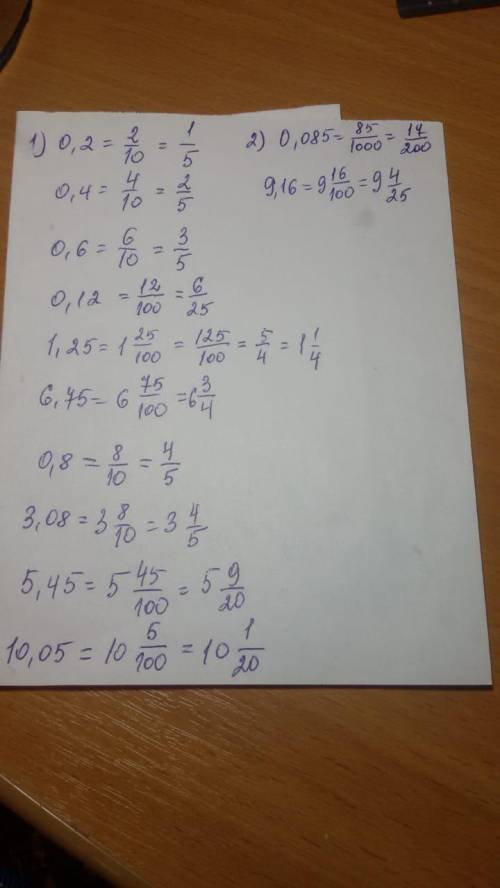 1) 0,2 = 2/10 = 1/5
0,4 = 4/10 = 2/5
0,6 = 6/10 = 3/5
0,12 = 12/100 = 6/25
1,25 = 1 25/100 = 125/100 = 5/4 = 1 1/4
6,75 = 6 75/100 = 6 3/4
0,8 = 8/10 = 4/5
3,08 = 3 8/10 = 3 4/5
5,45 = 5 45/100 = 5 9/20
10,05 = 10 5/100 = 10 1/20
2) 0,085 = 85/1000 = 17/200
9,16 = 9 16/100 = 9 4/25